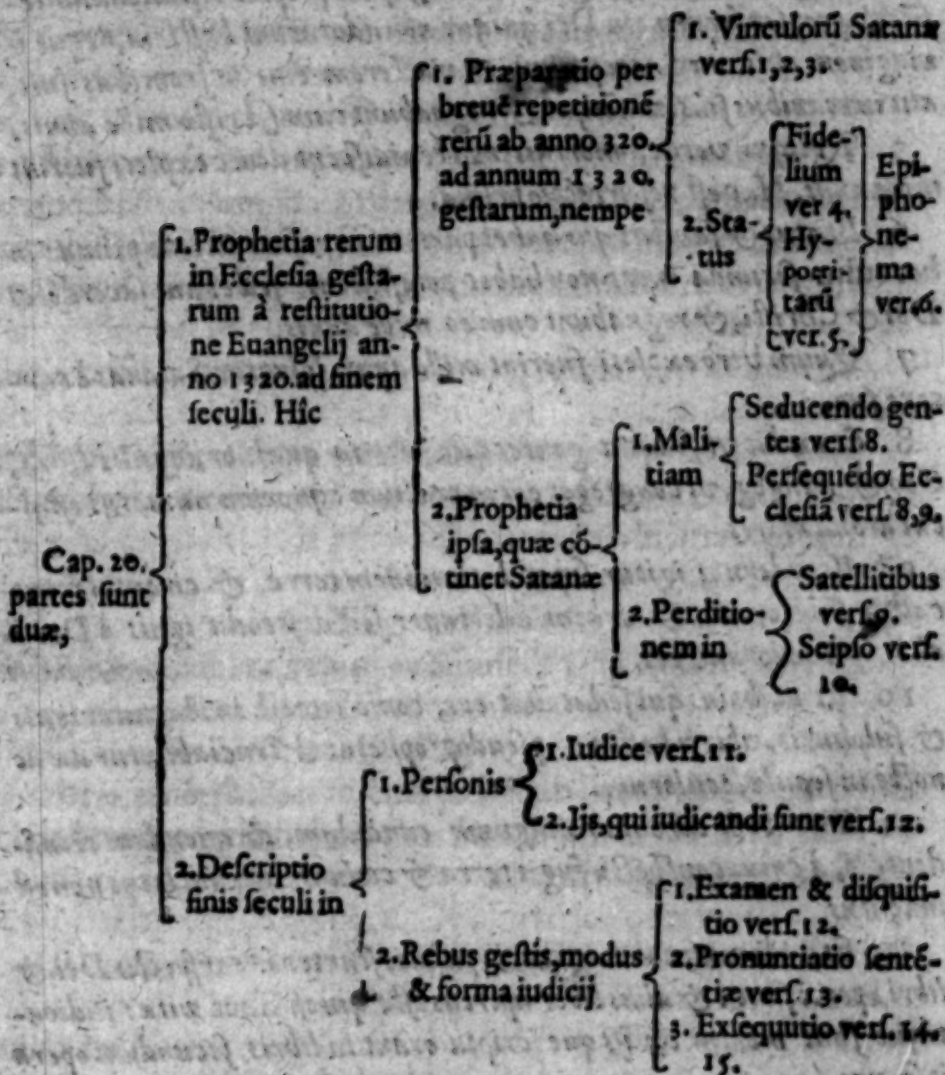 Cap. 20.
partes sunt
duæ,
1. Prophetia rerum
in Ecclesia gesta-
rum à restitutio-
ne Euangelij an-
no 1320. ad finem
seculi. Hîc
1. Præparatio per
breuē repetitionē
rerū ab anno 320.
ad annum 1320.
gestarum, nempe
1. Vinculorū Satanæ
vers. 1, 2, 3.
2. Sta-
tus
Fide-
lium
ver 4.
Hy-
pocri-
tarū
ver. 5.
Epi-
pho-
ne-
ma
ver. 6.
2. Prophetia
ipsa, quæ cō-
tinet Satanæ
1. Mali-
tiam
Seducendo gen-
tes vers. 8.
Persequēdo Ec-
clesiā vers. 8, 9.
2. Perditio-
nem in
Satellitibus
vers. 9.
Seipso vers.
10.
2. Descriptio
finis seculi in
1. Personis
1. Iudice vers. 11.
2. Ijs, qui iudicandi sunt vers. 12.
2. Rebus gestis, modus
& forma iudicij
1. Examen & disquisi-
tio vers. 12.
2. Pronuntiatio sentē-
tiæ vers. 13.
3. Exsequutio vers. 14.
15.